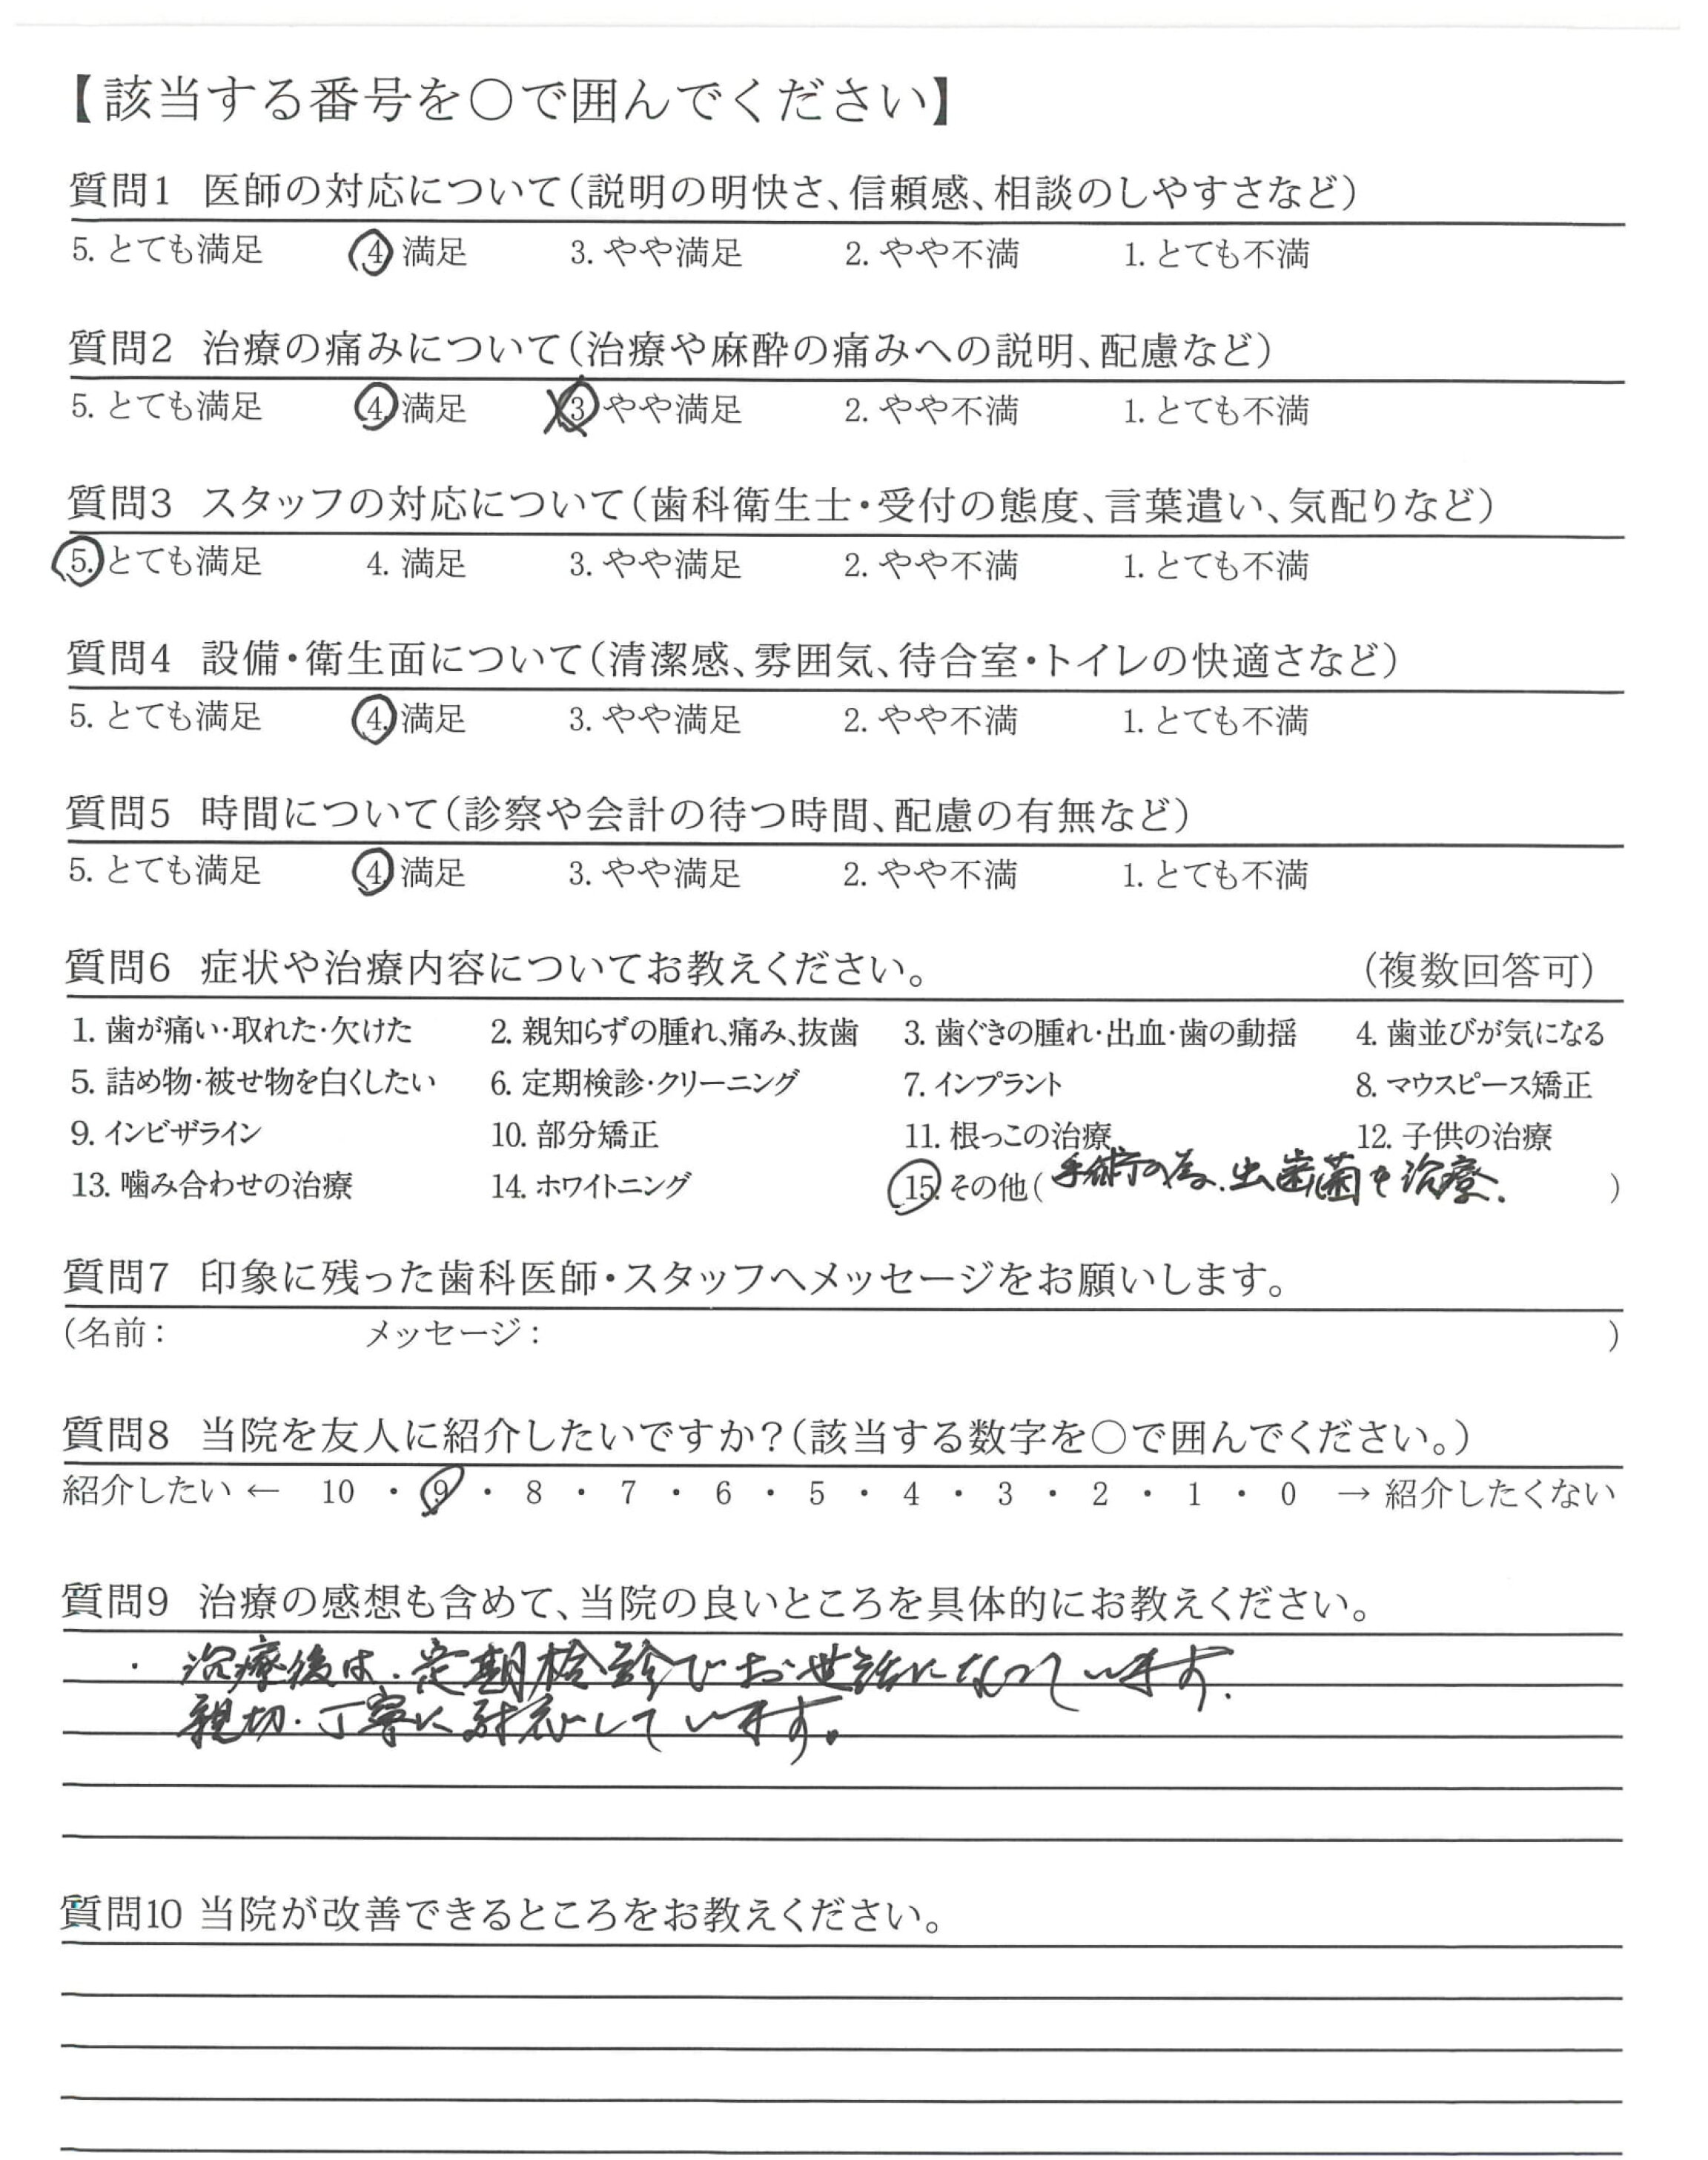 【該当する番号を○で囲んでください】
質問1 医師の対応について(説明の明快さ、信頼感、相談のしやすさなど)
5. とても満足 4. 満足 3. やや満足 2. やや不満 1. とても不満
質問2 治療の痛みについて(治療や麻酔の痛みへの説明、配慮など)
5. とても満足 4. 満足 3. やや満足 2. やや不満 1. とても不満
質問3 スタッフの対応について(歯科衛生士・受付の態度、言葉遣い、気配りなど)
5. とても満足 4. 満足 3. やや満足 2. やや不満 1. とても不満
質問4 設備・衛生面について(清潔感、雰囲気、待合室・トイレの快適さなど)
5. とても満足 4. 満足 3. やや満足 2. やや不満 1. とても不満
質問5 時間について(診察や会計の待つ時間、配慮の有無など)
5. とても満足 4. 満足 3. やや満足 2. やや不満 1. とても不満
質問6 症状や治療内容についてお教えください。 (複数回答可)
1. 歯が痛い・取れた・欠けた 2. 親知らずの腫れ、痛み、抜歯 3. 歯ぐきの腫れ・出血・歯の動揺 4. 歯並びが気になる
5. 詰め物・被せ物を白くしたい 6. 定期検診・クリーニング 7. インプラント 8. マウスピース矯正
9. インビザライン 10. 部分矯正 11. 根っこの治療 12. 子供の治療
13. 噛み合わせの治療 14. ホワイトニング 15. その他(手術の為、虫歯菌を治療. )
質問7 印象に残った歯科医師・スタッフへメッセージをお願いします。
(名前: メッセージ: )
質問8 当院を友人に紹介したいですか?(該当する数字を○で囲んでください。)
紹介したい ← 10 ・ 9 ・ 8 ・ 7 ・ 6 ・ 5 ・ 4 ・ 3 ・ 2 ・ 1 ・ 0 → 紹介したくない
質問9 治療の感想も含めて、当院の良いところを具体的にお教えください。
・ 治療後は、定期検診でお世話になっています.
親切・丁寧に対応しています。
質問10 当院が改善できるところをお教えください。